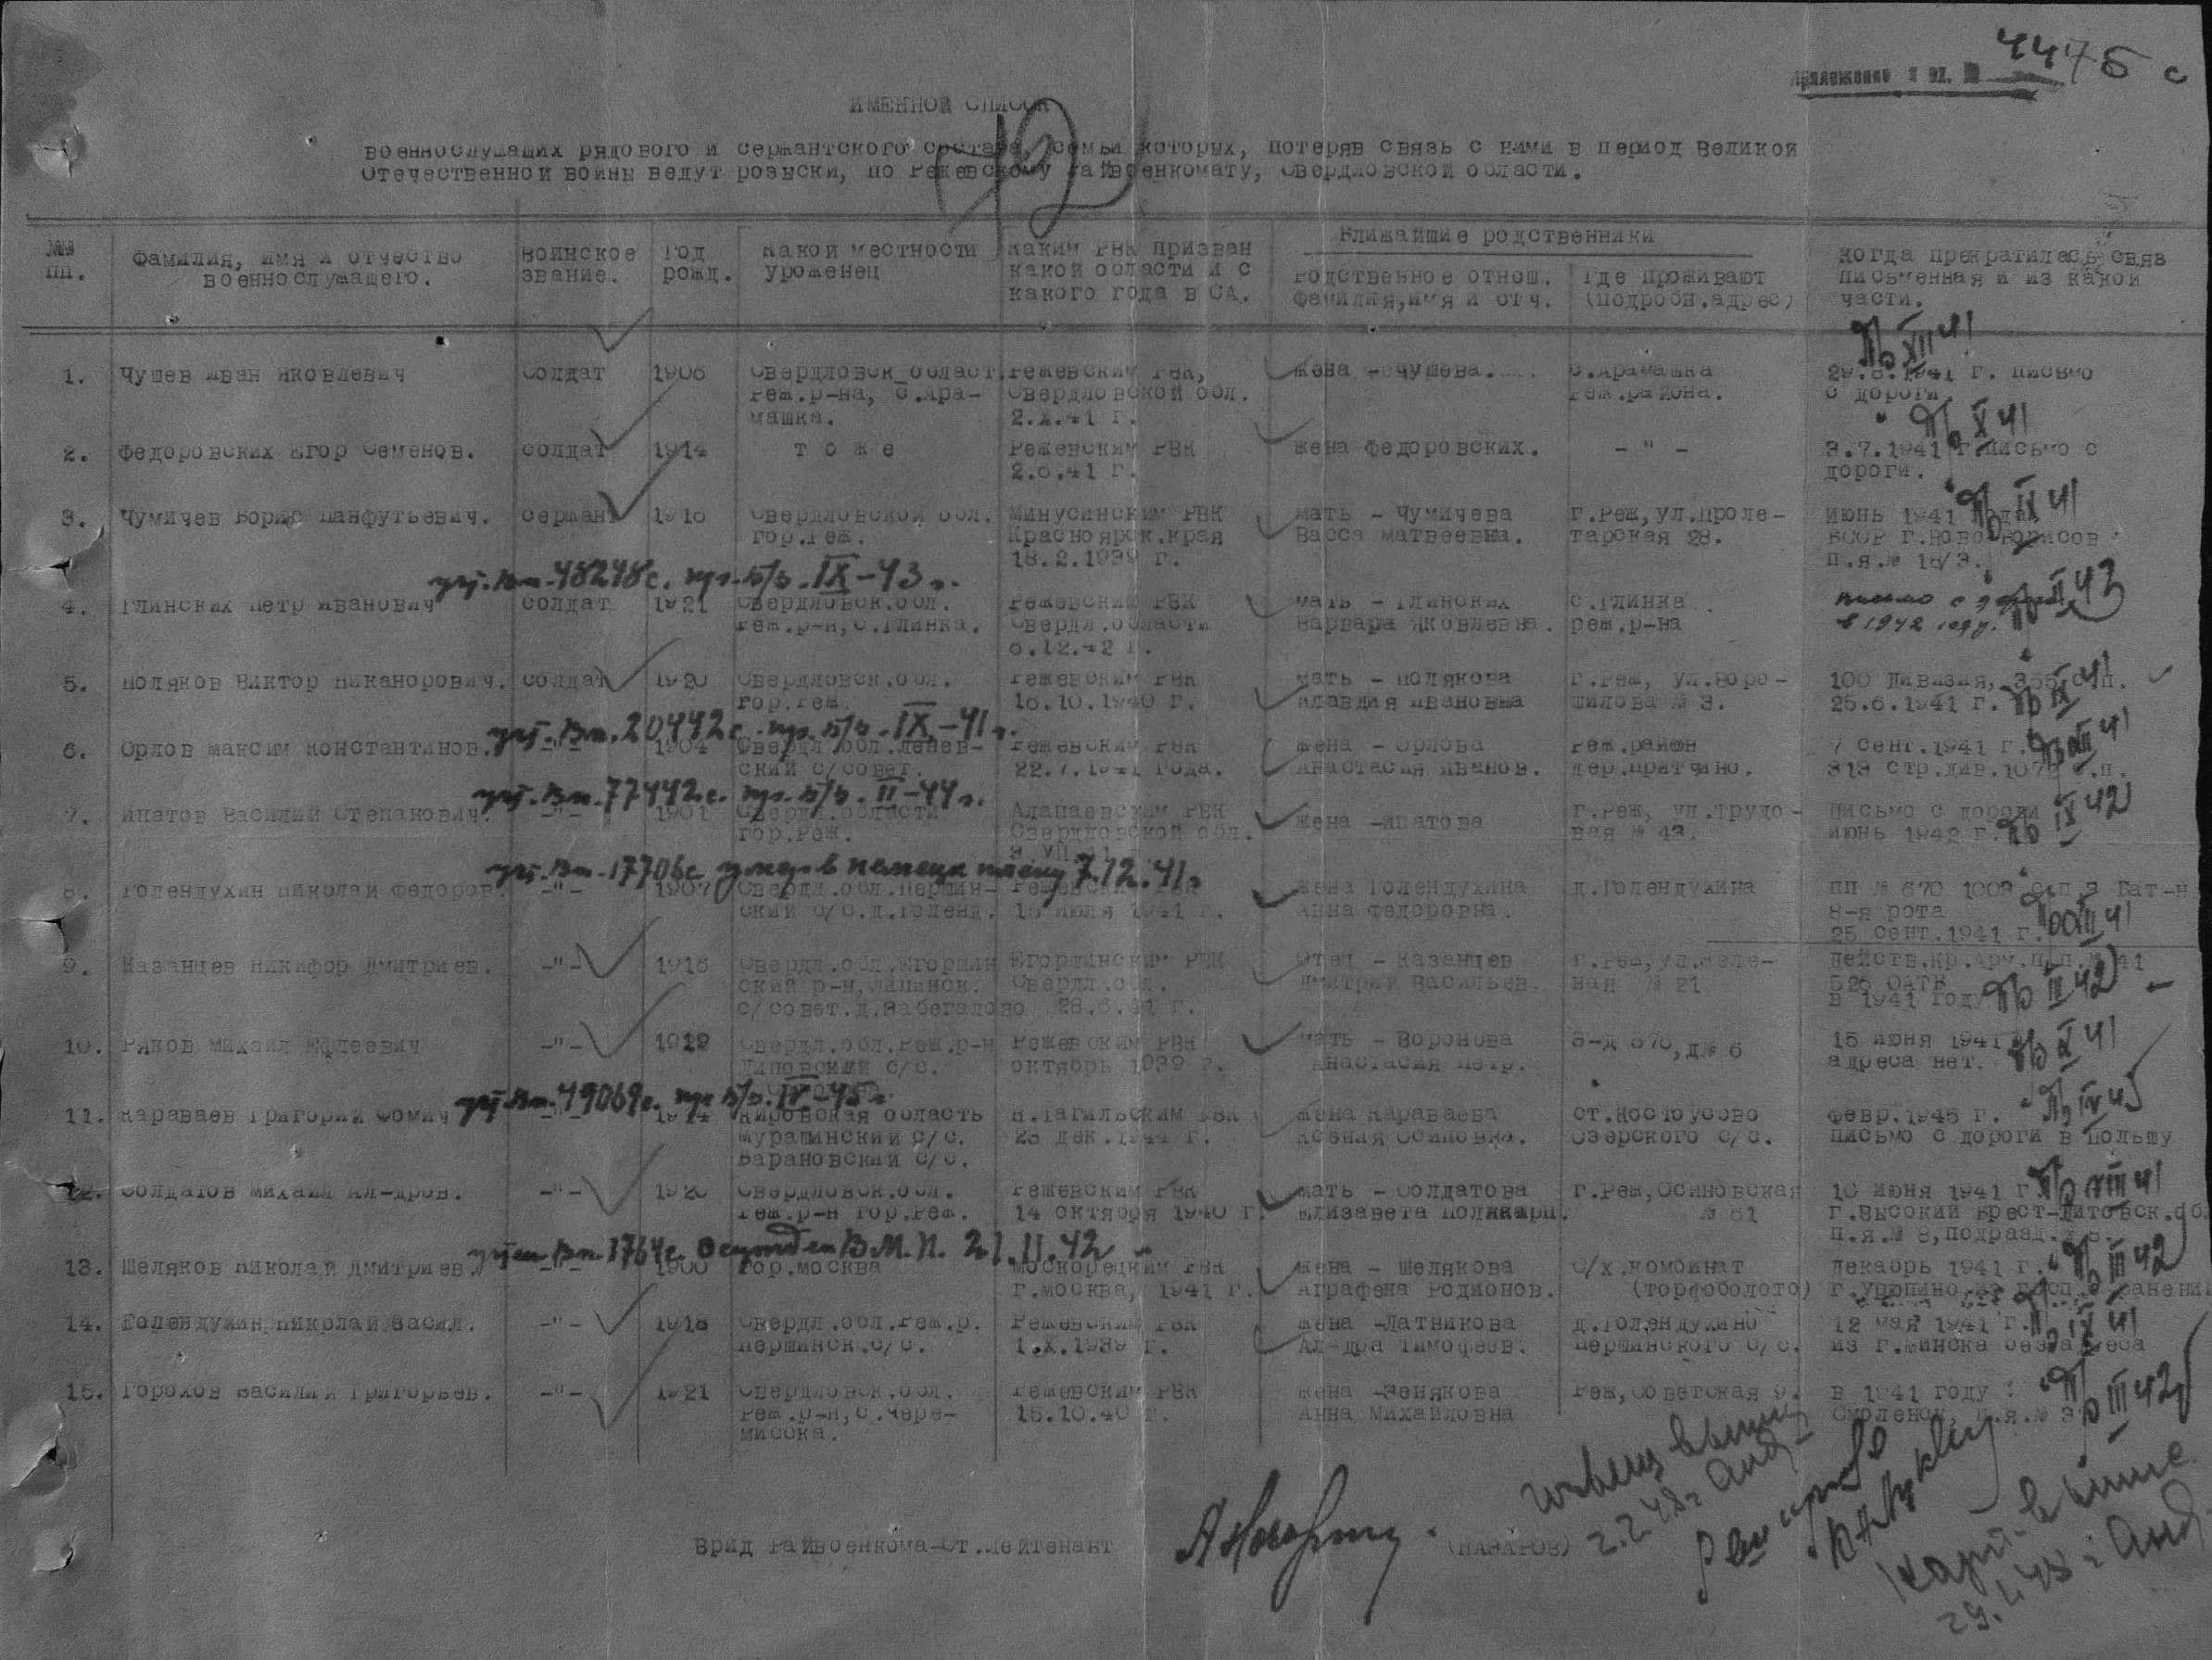 Приложение к вх. № 4475 с
ИМЕННОЙ СПИСОК
военнослужащих рядового и сержантского состава, семьи которых, потеряв связь с ними в период Великой
Отечественной войны ведут розыски, по Режевскому Райвоенкомату, Свердловской области.
№№ пп.
Фамилия, имя и отчество военнослужащего.
Воинское звание.
Год рожд.
Какой местности уроженец
Каким РВК призван какой области и с какого года в СА.
Ближайшие родственники
Родственное отнош. фамилия, имя и отч.
Где проживают (подробн.адрес)
Когда прекратилась связ письменная и из какой части.
Пб XII 41
1. Чушев Иван Яковлевич солдат 1906 Свердловск_област. Режевским РВК, жена - Чушева. с.Арамашка 29.8.1941 г. письмо
Реж.р-на, с.Ара- Свердловской обл. Реж.района. с дороги
машка. 2.X.41 г.
Пб X 41
2. Федоровских Егор Семенов. солдат 1914 т о ж е Режевским РВК жена Федоровских. - " - 3.7.1941 г. письмо с
2.6.41 г. дороги.
Пб IX 41
3. Чумичев Борис Панфутьевич. сержант 1918 Свердловской обл. Минусинским РВК мать - Чумичева г.Реж, ул.Проле- Июнь 1941 года
гор.Реж. Красноярск.края Васса Матвеевна. тарская 28. БССР г.Ново-Борисов
18.2.1939 г. п.я.№ 18/3.
уч. Вх. 48248с. пр. б/в. IX-43 г.
4. Глинских Петр Иванович солдат 1921 Свердловск.обл. Режевским РВК мать - Глинских с.Глинка письмо с дороги Пб II 43
Реж.р-н, с.Глинка. Свердл.области Варвара Яковлевна. реж.р-на в 1942 году.
6.12.42 г.
5. Поляков Виктор Никанорович. солдат 1920 Свердловск.обл. Режевским РВК мать - Полякова г.Реж, ул.Воро- 100 Дивизия, 355 с.п.
гор.Реж. 16.10.1940 г. Клавдия Ивановна шилова № 3. 25.6.1941 г. Пб IX 41
уч. Вх. 20442с. пр. б/в. IX-41 г.
6. Орлов Максим Константинов. -"- 1904 Свердл.обл.Ленев- Режевским РВК жена - Орлова Реж.район 7 сент.1941 г. Пб XII 41
ский с/совет. 22.7.1941 года. Анастасия Иванов. дер.Притчино. 313 стр.див.1079 с.п.
уч. Вх. 77442с. пр. б/в. II-44 г.
7. Ипатов Василий Степанович. -"- 1901 Свердл.области Алапаевским РВК жена -Ипатова г.Реж, ул.Трудо- Письмо с дороги
гор.Реж. Свердловской обл. вая № 43. Июнь 1942 г. Пб IX 42
уч. Вх. 17706с умер в немецк плену 7.12.41 г.
8. Голендухин Николай Федоров. -"- 1907 Свердл.обл.Першин- Режевским РВК жена Голендухина д.Голендухина ПП № 670 1009 с.п 3 Бат-н
ский с/с.д.Голенд. 15 июля 1941 г. Анна Федоровна. 8-я рота
25 сент.1941 г. Пб XII 41
9. Казанцев Никифор Дмитриев. -"- 1916 Свердл.обл.Егоршин Егоршинским РВК Отец - Казанцев г.Реж, ул.Зеле- Действ.Кр.Арм.
ский р-н, Липинск. Свердл.обл. Дмитрий Васильев. ная № 21
с/совет.д.Забегалово 28.6.41 г. в 1941 году Пб III 42
10. Ряков Михаил -"- 1919 Свердл.обл.Реж.р-н Режевским РВК мать - Воронова 15 июня 1941 г.
Липовский с/с. октябрь 1939 г. Анастасия Петр. адреса нет. Пб X 41
уч. Вх. 49069с. пр б/в. IV-45 г.
11. Караваев Григорий Фомич -"- 1914 Кировская область Н.Тагильским РВК жена Караваева ст.Костоусово февр.1945 г. Пб IV 45
Мурашинский с/с. 23 дек.1944 г. Ксения Осиповна. Озерского с/с. письмо с дороги в Польшу
Барановский с/с.
12. Солдатов Михаил Ал-дров. -"- 1920 Свердловск.обл. Режевским РВК мать - Солдатова г.Реж, Осиновская 16 июня 1941 г. Пб VIII 41
Реж.р-н гор.Реж. 14 октября 1940 г. Елизавета № 61 г.Высокий Брест-Литовск.об.
п.я.№ 8, подразд.
учтен Вх. 1764с. осужден В.М.Н. 21.11.42
13. Шеляков Николай Дмитриев. -"- 1900 гор.Москва Москорецким РВК жена - Шелякова с/х.комбинат Декабрь 1941 г. Пб III 42
г.Москва, 1941 г. Аграфена Родионов. (торфоболото) г.Урюпино
14. Голендухин Николай Васил. -"- 1918 Свердл.обл.Реж.р. Режевским РВК жена -Латникова д.Голендухино 12 мая 1941 г. Пб IX 41
Першинск.с/с. 1.X.1939 г. Ал-дра Тимофеев. Першинского с/с. из г.Минска без адреса
15. Горохов Василий Григорьев. -"- 1921 Свердловск.обл. Режевским РВК жена -Зенякова Реж, Советская 9. в 1941 году :
Реж.р-н, с.Чере- 15.10.40 г. Анна Михайловна Смоленск, п.я.№ Пб III 42
мисска.
Врид Райвоенкома-Ст.Лейтенант (НАЗАРОВ)